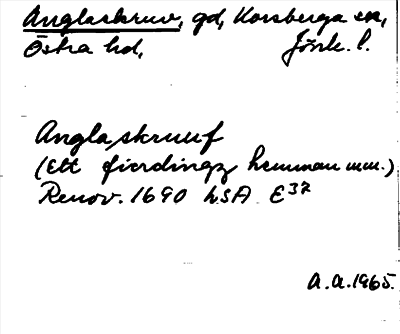 Anglaskruv, gd, Korsberga sn,
Östra hd, Jönk. l.
Anglaskruuf
(Ett fierdingz hemman mm.)
Renov. 1690 LSA E37
A.A.1965.